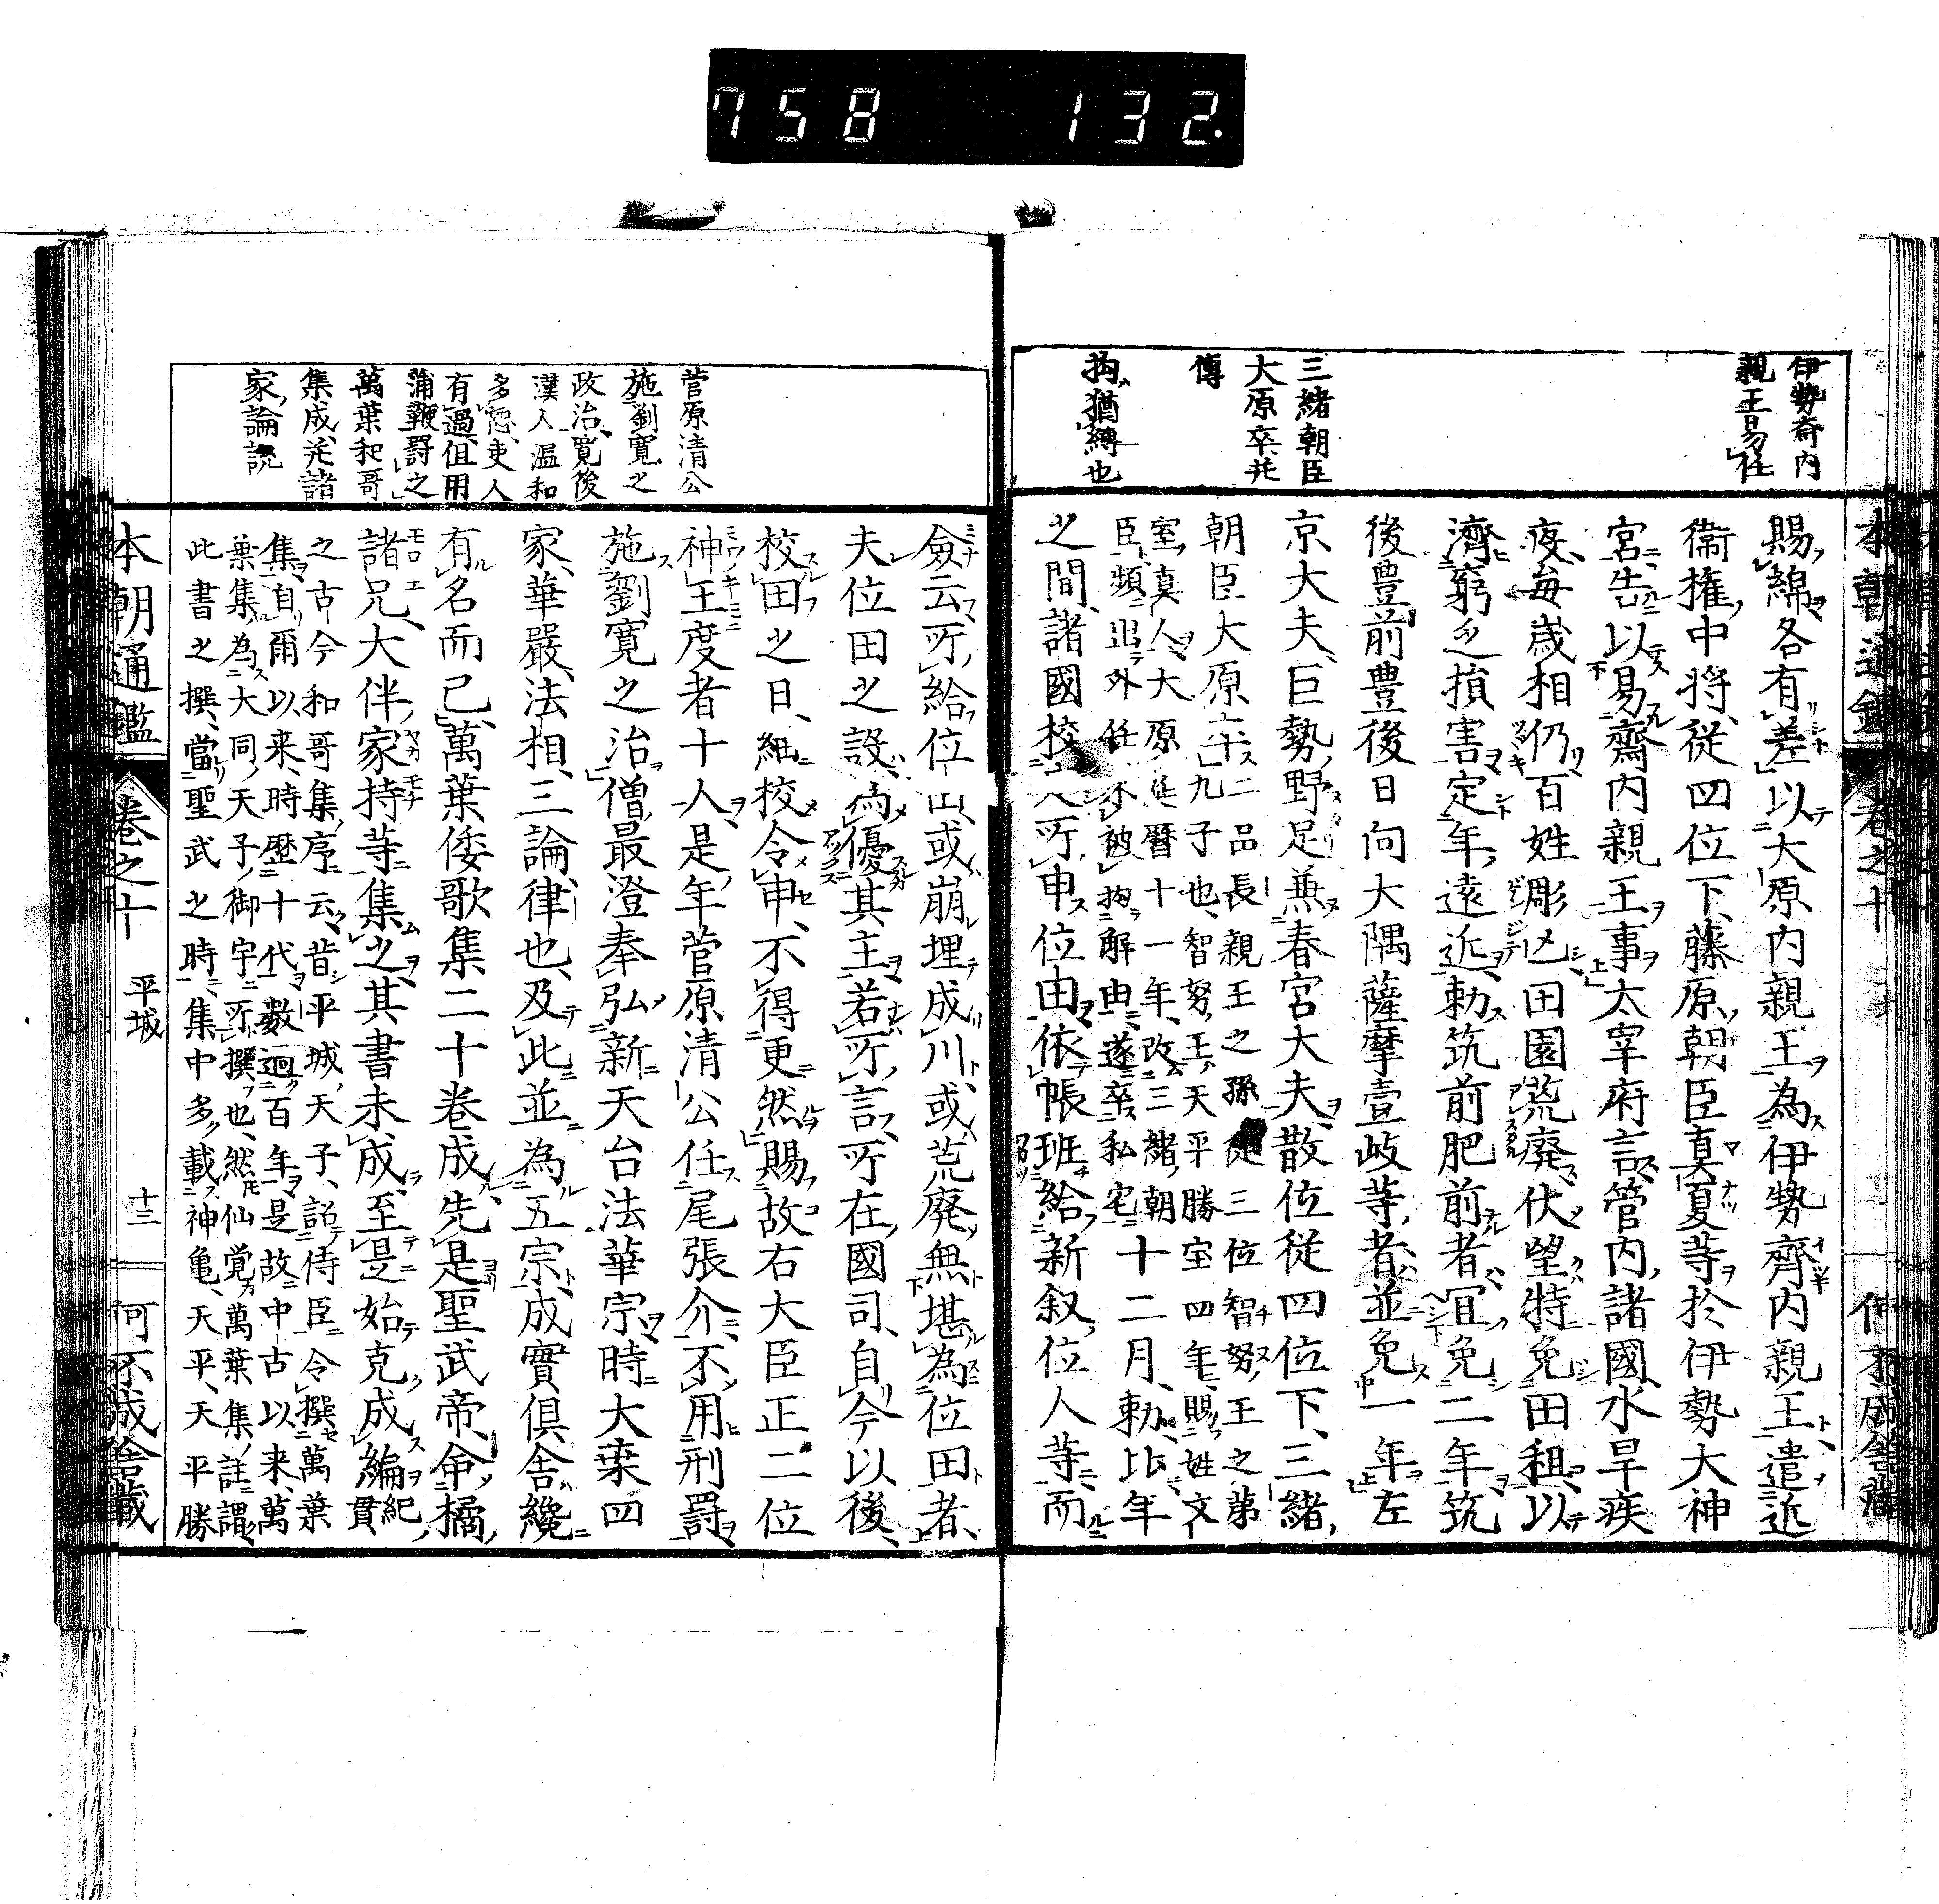 758 132.
伊勢斎内
親王易任
三緒朝臣
大原卒幷
傳
拘猶縛也
賜綿各有差以大原内親王為伊勢齊内親王遣近
衞権中将従四位下藤原朝臣真夏等於伊勢大神
宮告以易齋内親王事太宰府言管内諸國水旱疾
疫毎歳相仍百姓彫亡田園荒廃伏望特免田租以
濟窮乏損害定年遠近勅筑前肥前者宜免二年筑
後豊前豊後日向大隅薩摩壹岐等者並免一年左
京大夫巨勢野足兼春宮大夫散位従四位下三緒
朝臣大原卒二品長親王之孫従三位智努王之弟
九子也智努王天平勝宝四年賜姓文
室真人大原延暦十一年改三緒朝
臣頻出外任不被拘解由遂卒私宅十二月勅比年
之間諸國校 所申位由依帳班給新叙位人等而
菅原清公
施劉寛之
政治寛後
漢人温和
多恕吏人
有過但用
蒲鞭罸之
萬葉和哥
集成幷諸
家論説
僉云所給位山或崩埋成川或荒廃無堪為位田者
夫位田之設為優其主若所言所在國司自今以後
校田之日細校令申不得更然賜故右大臣正二位
神王度者十人是年菅原清公任尾張介不用刑罸
施劉寛之治僧最澄奉弘新天台法華宗時大桒四
家華嚴法相三論律也及此並為五宗成實倶舎纔
有名而已萬葉倭歌集二十巻成先是聖武帝命橘
諸兄大伴家持等集之其書未成至是始克成編紀
貫
之古今和哥集序云昔平城天子詔侍臣令撰萬葉
集自爾以来時歴十代數過百年是故中古以来萬
葉集為大同天子御宇所撰也然仙覚萬葉集註謂
此書之撰當聖武之時集中多載神亀天平天平勝
本朝通鑑 巻之十 平城 十三 何不成舎蔵